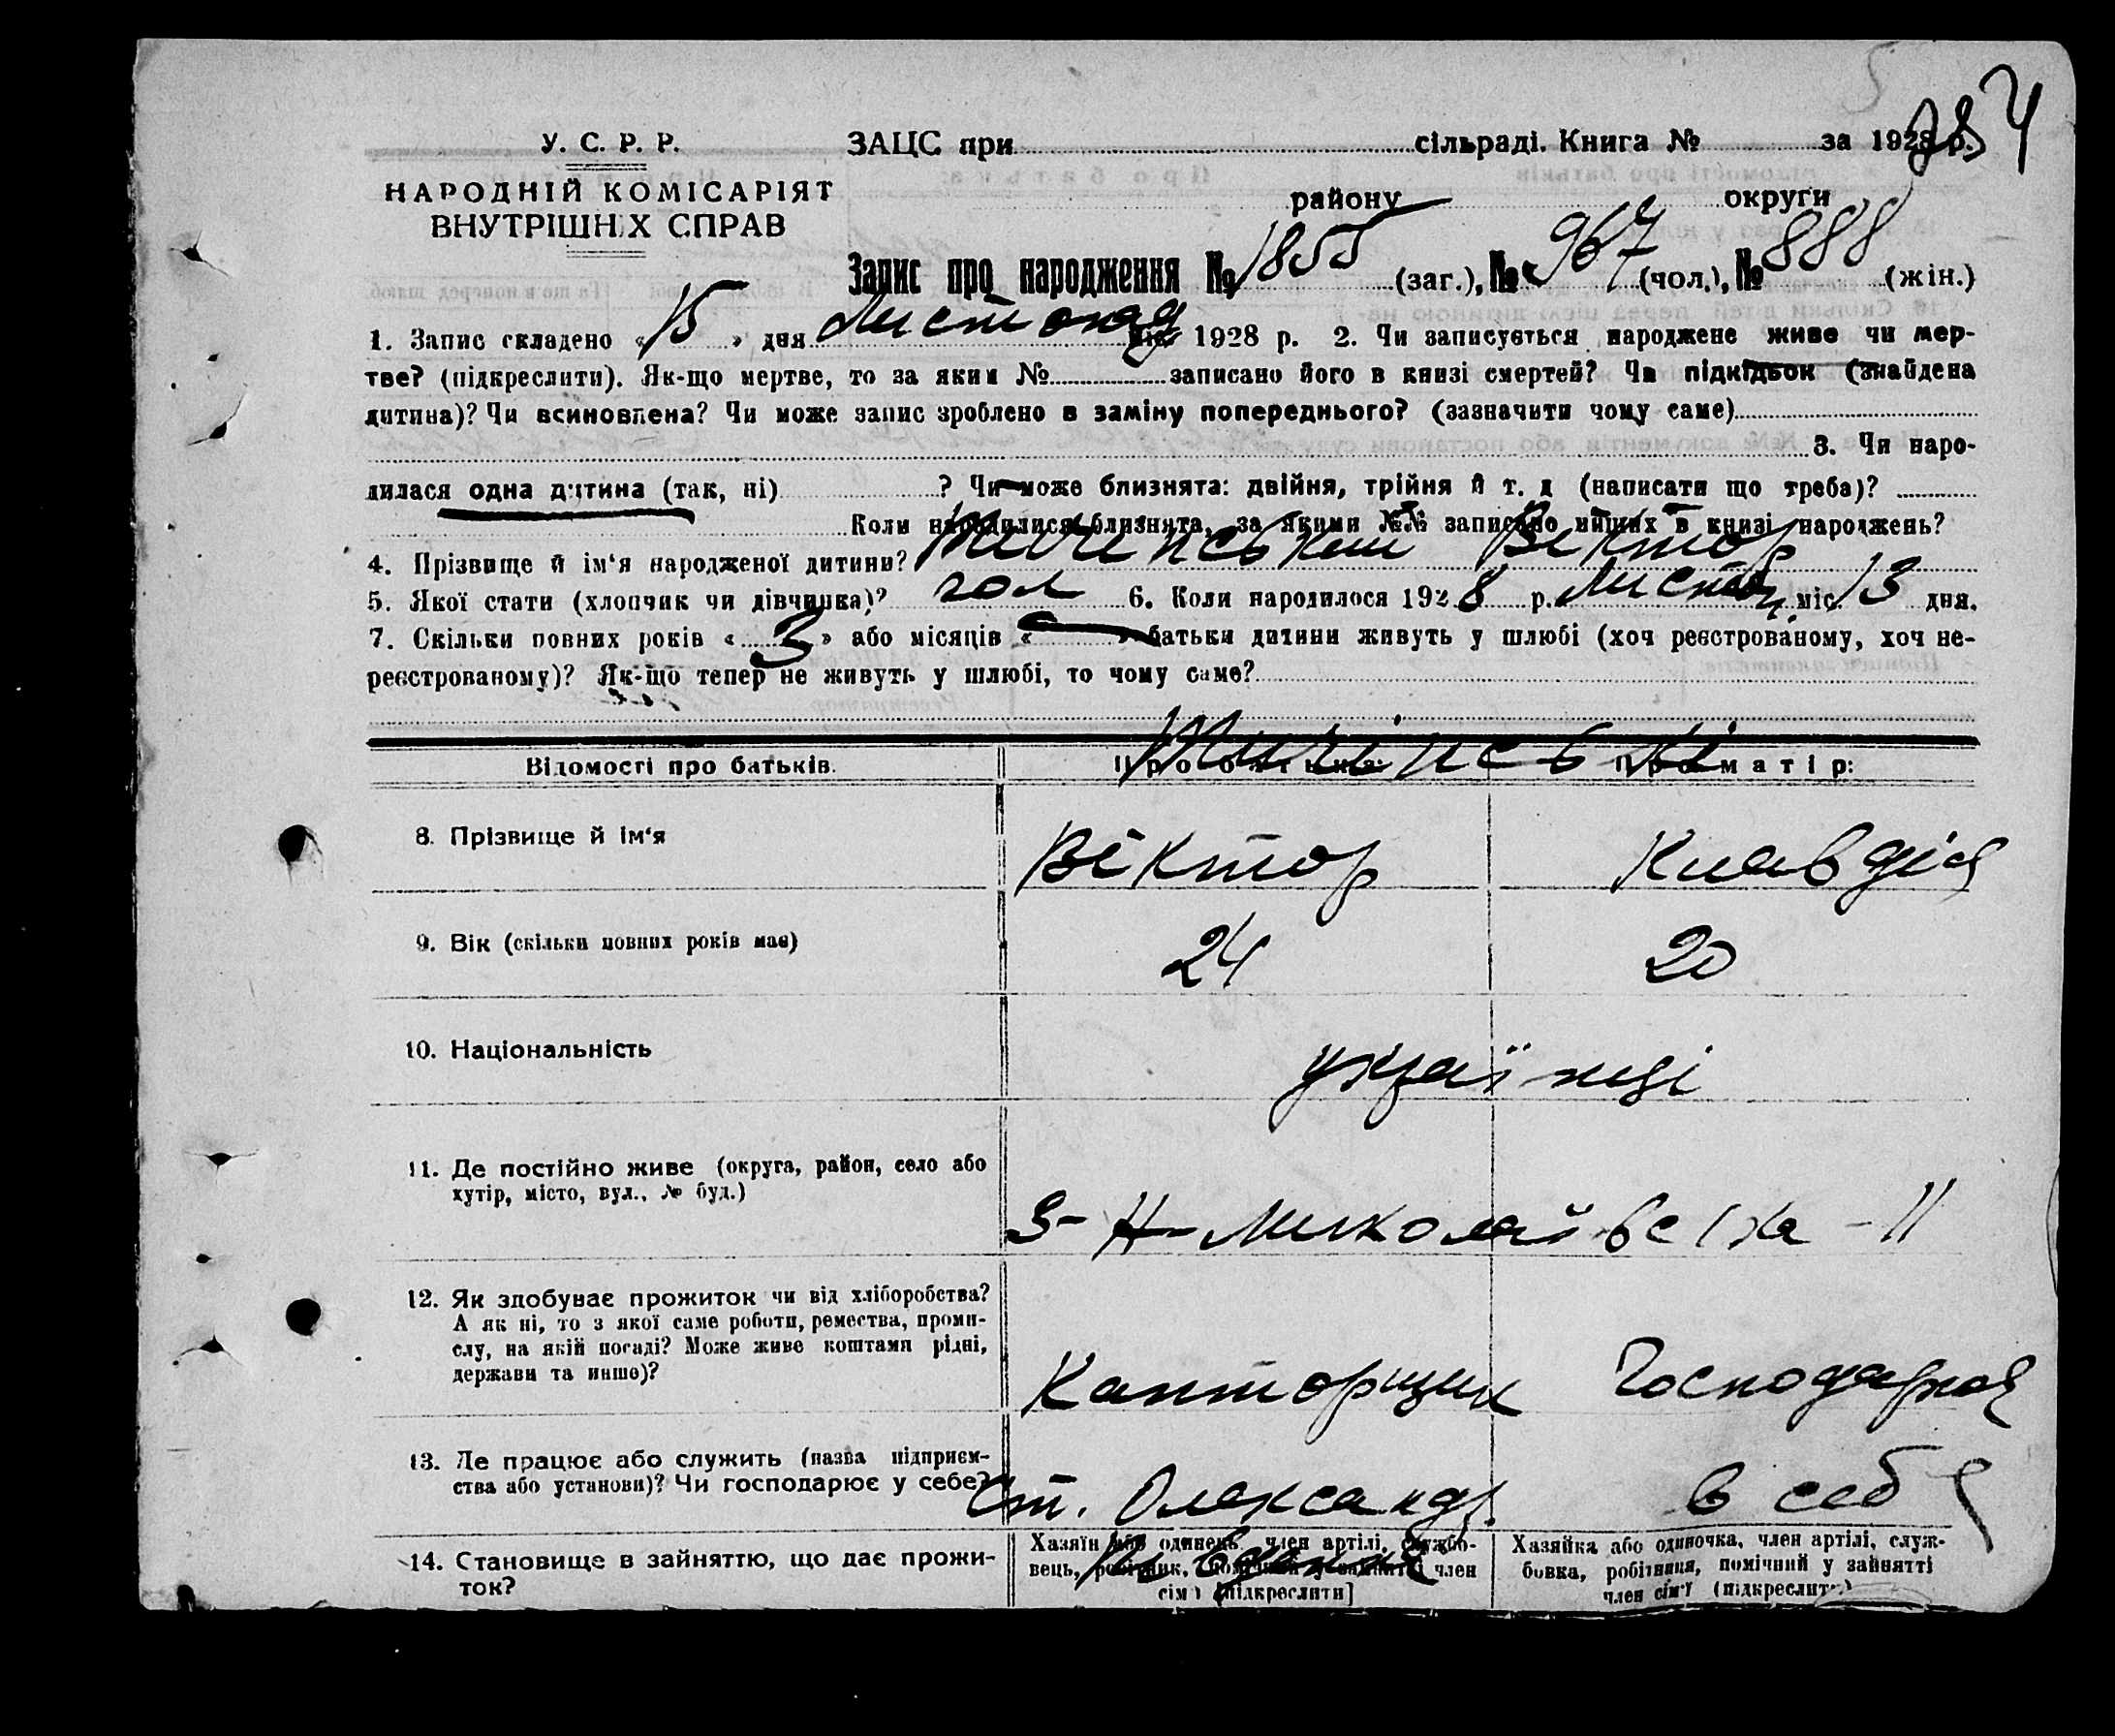 284
У. С. Р. Р.
ЗАЦС при сільраді. Книга № за 1928 р.
НАРОДНІЙ КОМІСАРІЯТ
ВНУТРІШНІХ СПРАВ
району округи
Запис про народження № 1855 (заг.), № 967 (чол.), № 888 (жін.)
1. Запис складено « 15 » дня Листопад міс. 1928 р. 2. Чи записується народжене живе чи мер-
тве? (підкреслити). Як-що мертве, то за яким № записано його в книзі смертей? Чи підкідьок (знайдена
дитина)? Чи всиновлена? Чи може запис зроблено в заміну попереднього? (зазначити чому саме)
3. Чи наро-
дилася одна дитина (так, ні) ? Чи може близнята: двійня, трійня й т. д (написати що треба)?
Коли народилися близнята, за якими №№ записано инших в книзі народжень?
4. Прізвище й ім'я народженої дитини? Віктор
5. Якої стати (хлопчик чи дівчинка)? чол 6. Коли народилося 1928 р. Листоп міс. 13 дня.
7. Скільки повних років « 3 » або місяців « — » батьки дитини живуть у шлюбі (хоч реєстрованому, хоч не-
реєстрованому)? Як-що тепер не живуть у шлюбі, то чому саме?
Відомості про батьків. Про батька: Про матір:
8. Прізвище й ім'я Віктор Клавдія
9. Вік (скільки повних років має) 24 20
10. Національність українці
11. Де постійно живе (округа, район, село або
хутір, місто, вул., № буд.)
Миколаївська - 11
12. Як здобуває прожиток чи від хліборобства?
А як ні, то з якої саме роботи, ремества, проми-
слу, на якій посаді? Може живе коштами рідні,
держави та инше)?
Канторщик Господарка
13. Де працює або служить (назва підприєм-
ства або установи)? Чи господарює у себе?
ст. Олександр. в себе
14. Становище в зайняттю, що дає прожи-
ток?
Хазяїн або одинець, член артілі, службо-
вець, робітник, помічний у зайнятті член
сім'ї [підкреслити]
Хазяйка або одиночка, член артілі, служ-
бовка, робітниця, помічний у зайнятті
член сім'ї (підкреслити)